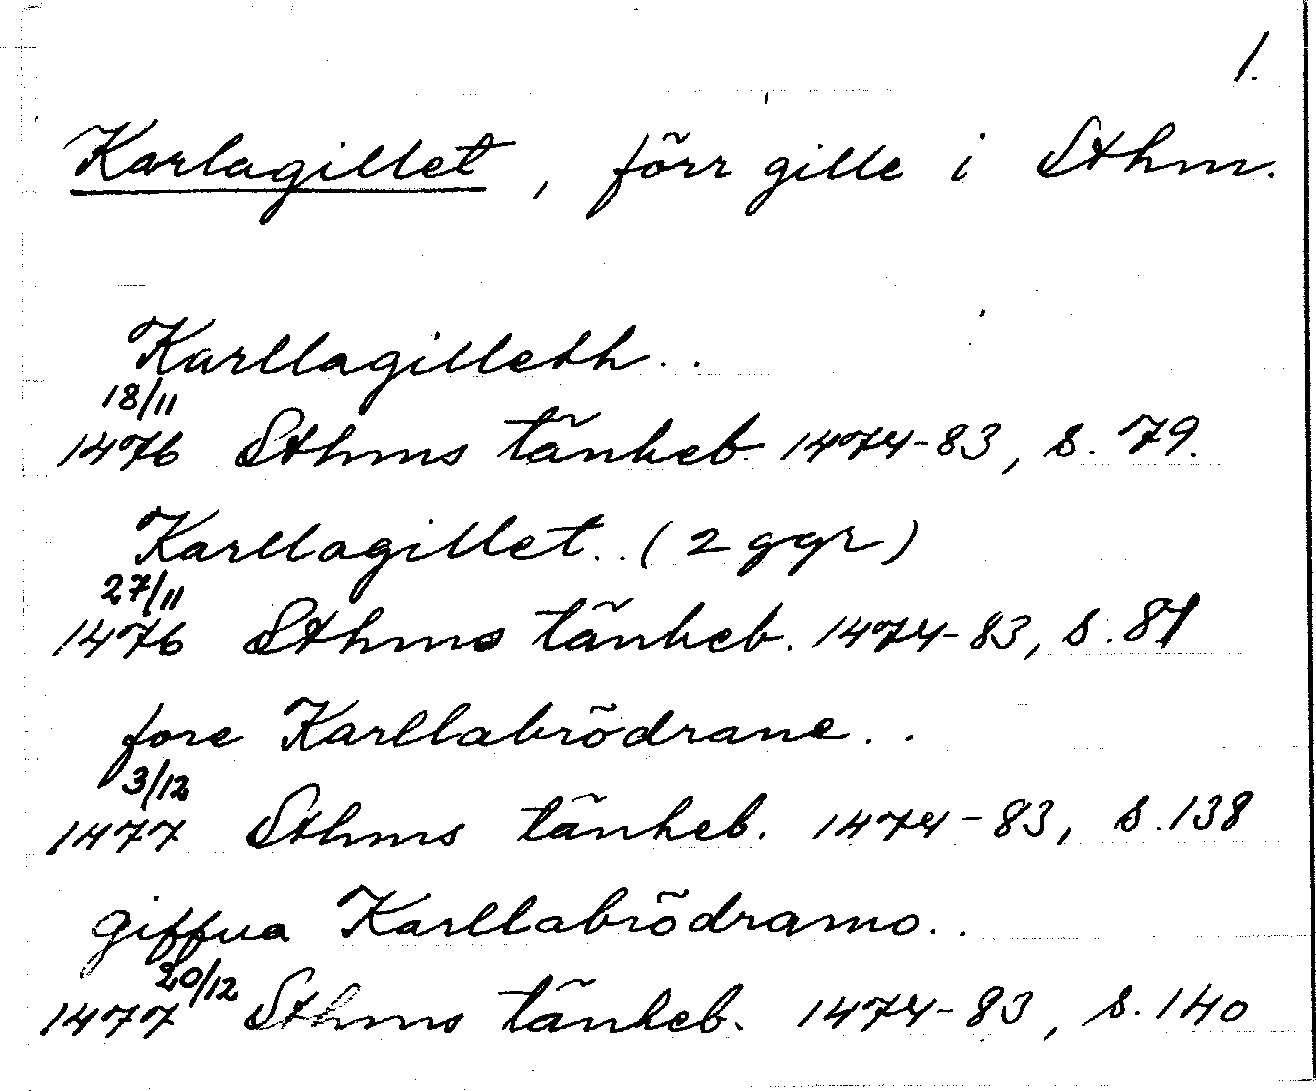 1.
Karlagillet, förr gille i Sthm.
Karllagilleth..
18/11
1476 Sthms tänkeb 1474-83, s. 79.
Karllagillet..(2 ggr)
27/11
1476 Sthms tänkeb. 1474-83, s. 81
fore Karllabrödrane..
3/12
1477 Sthms tänkeb. 1474-83, s. 138
giffua Karllabrödramo..
20/12
1477 Sthms tänkeb. 1474-83, s. 140